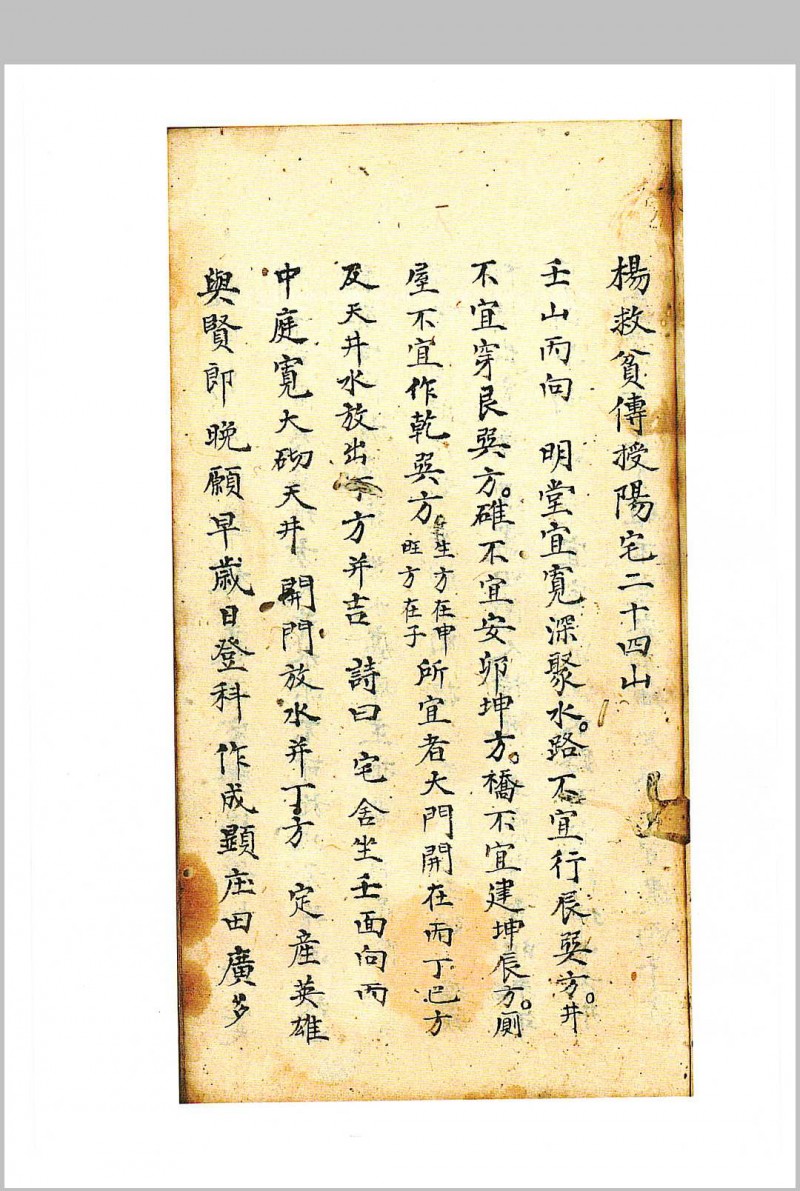 楊救貧傳授陽宅二十四山
壬山丙向　明堂宜寬深聚水。路不宜行辰巽方。井
不宜穿艮巽方。碓不宜安卯坤方。橋不宜建坤辰方。厠
屋不宜作乾巽方。生方在申旺方在子所宜者大門開在丙丁巳方
及天井水放出丁方并吉　詩曰　宅舍坐壬面向丙
中庭寬大砌天井　開門放水并丁方　定産英雄
與賢郎晚願早歲日登科　作成顯庄田廣多